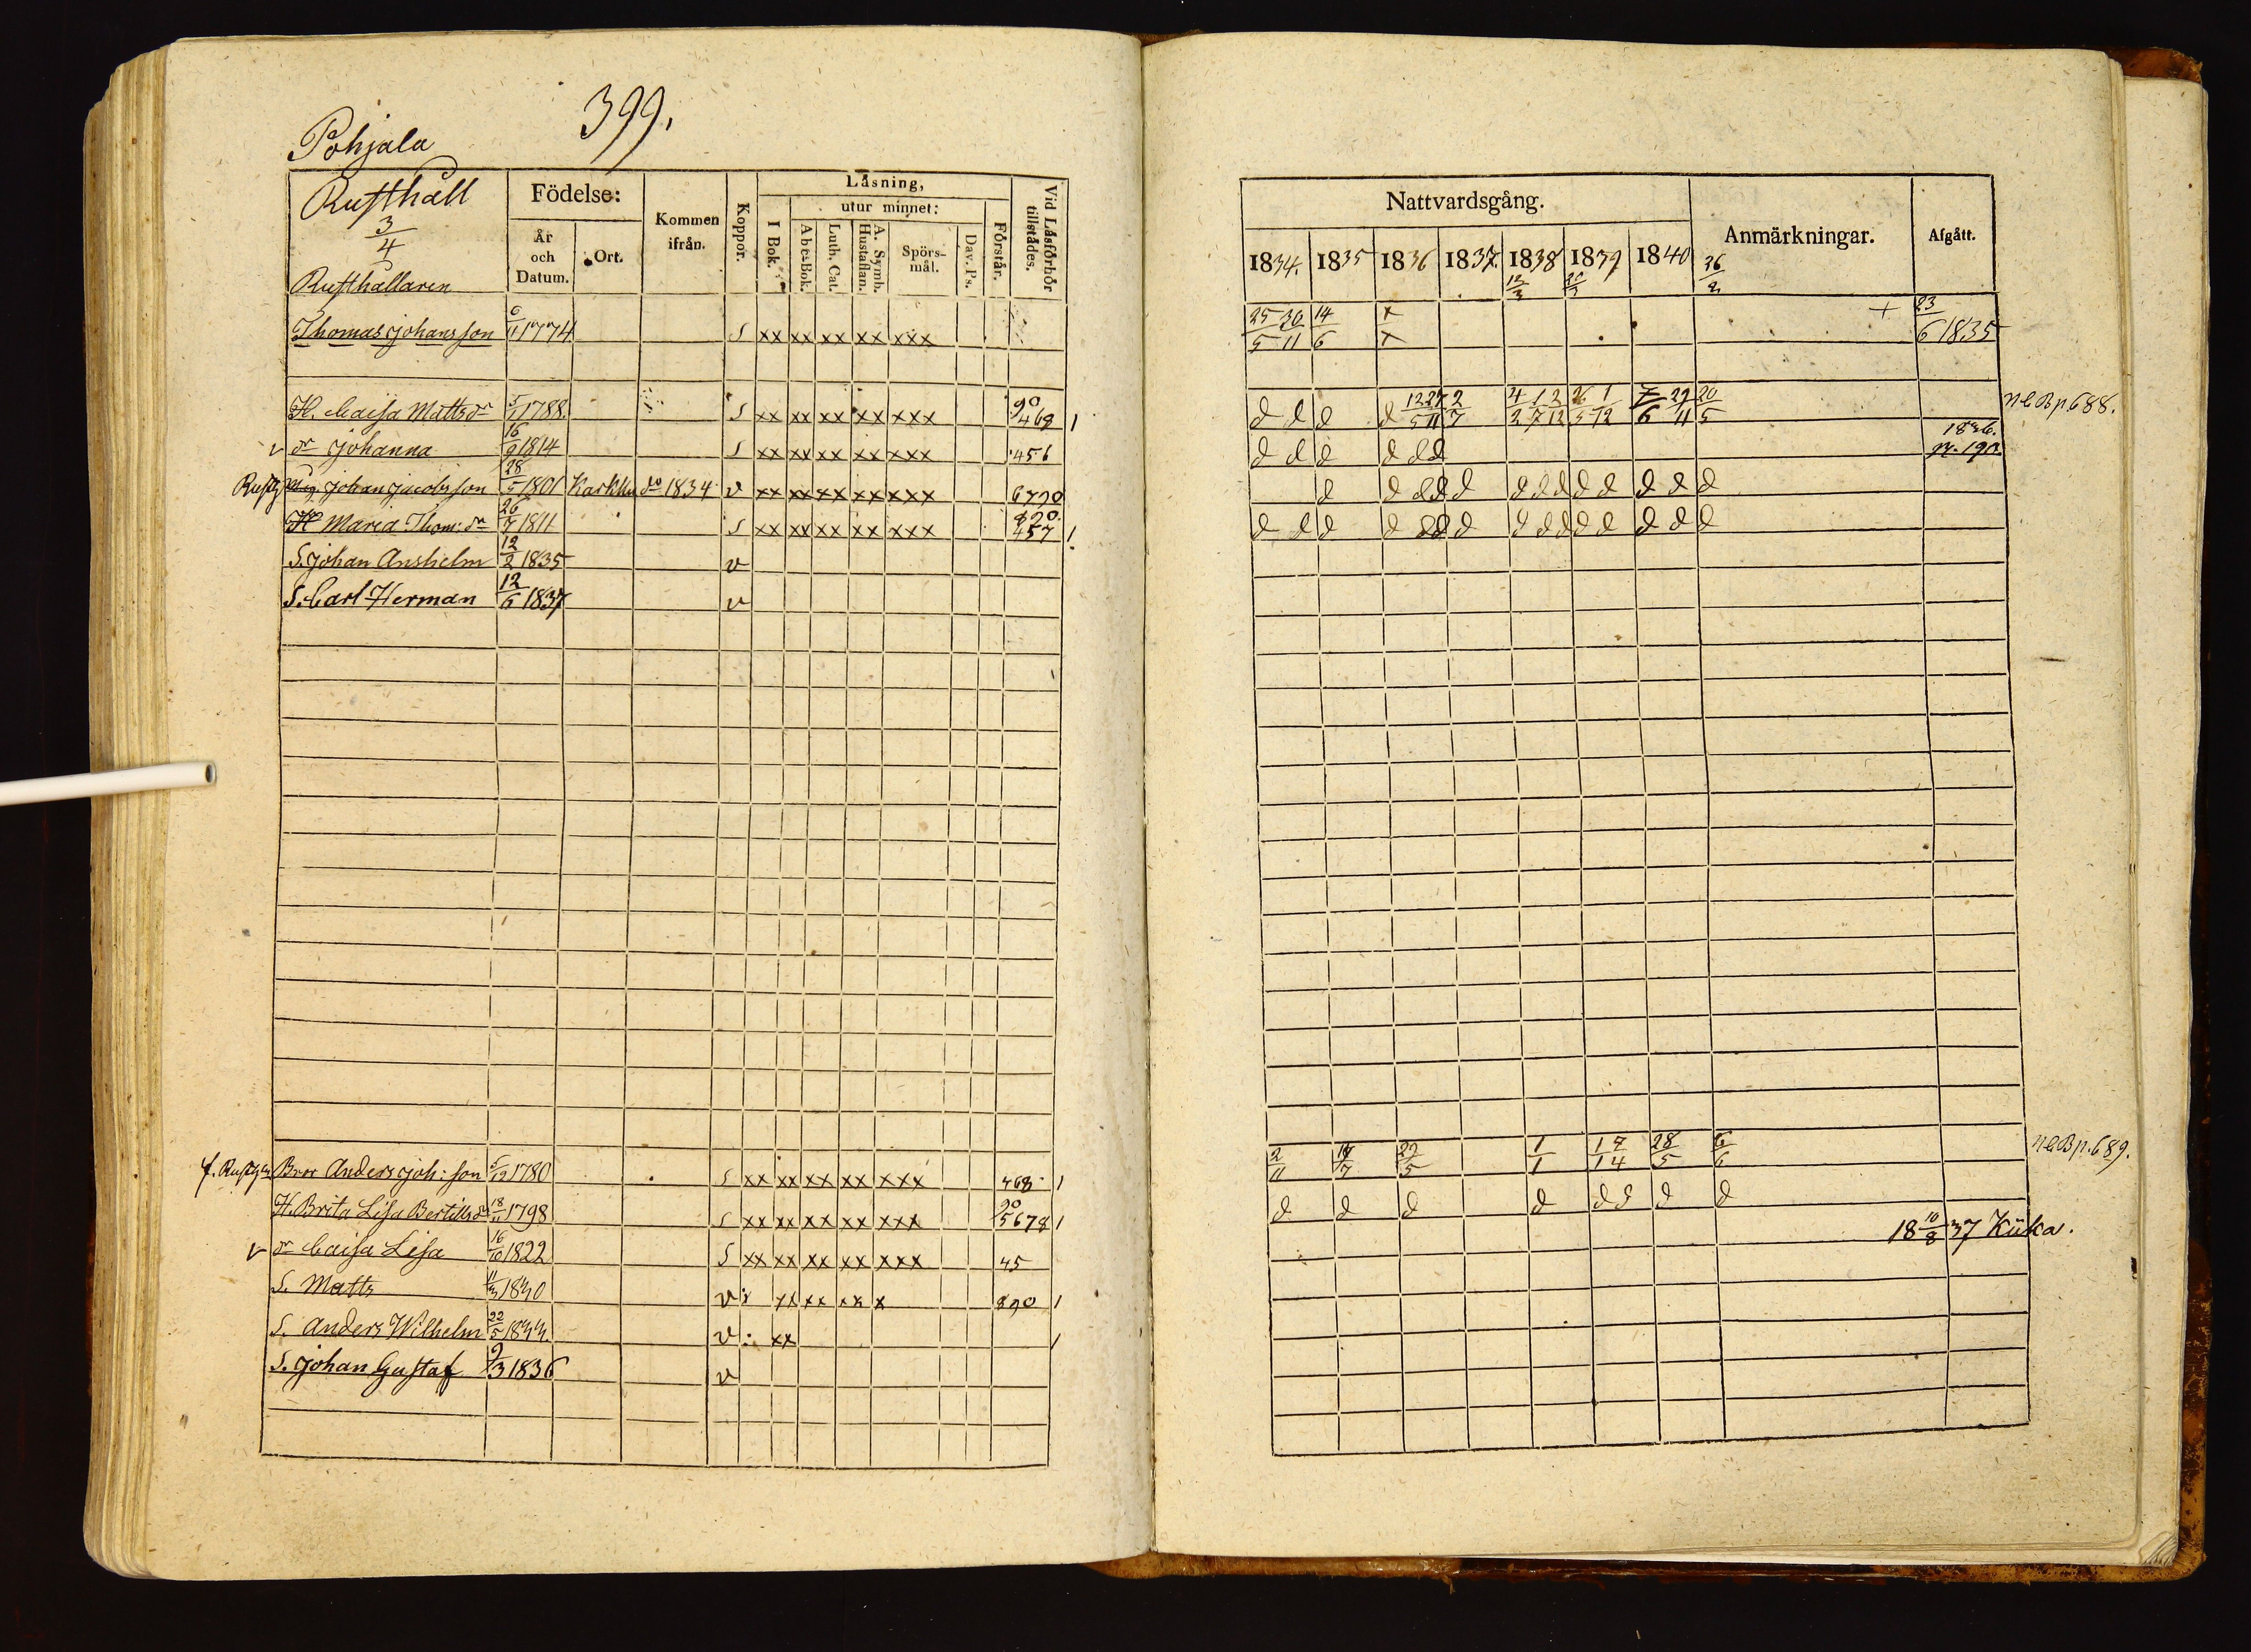 399.
Pohjala
Rusthåll
3/4
Rusthållaren
Födelse:
År och Datum.
Ort.
Kommen ifrån.
Koppor.
Läsning,
I Bok.
utur minnet:
Abc-Bok.
Luth. Cat.
A. Symb. Hustaflan.
Spörs-mål.
Dav. Ps.
Förstår.
Vid Läsförhör tillstädes.
Thomas Johansson 6/11 1774 S xx xx xx xx xxx
H. Caisa Mattsdr 5/1 1788 S xx xx xx xx xxx 90 468 1
v dr Johanna 16/9 1814 S xx xx xx xx xxx 456
Johan Jacobsson 28/5 1801 Karkku do 1834 v xx xx xx xx xxx 6790
H Maria Thom: dr 26/7 1811 S xx xx xx xx xxx 890 457 1
S. Johan Anshelm 12/2 1835 v
S. Carl Herman 12/6 1837 v
f. Bror Anders Joh: son 5/12 1780 S xx xx xx xx xxx 468 1
H. Brita Lisa Bertilsdr 18/11 1798 S xx xx xx xx xxx 90 5678 1
v dr Caisa Lisa 16/10 1822 S xx xx xx xx xxx 45
S. Matts 1830 v: xx xx xx x 890 1
S. Anders Wilhelm 22/5 1833 v: xx 1
S. Johan Gustaf 9/3 1836 v
Nattvardsgång.
Anmärkningar.
Afgått.
1834. 1835 1836 1837. 1838 1839 1840
25/5 30/11 14/6 x x + 23/6 1835
d d d d 12/5 27/11 2/7 4/2 1/7 2/12 26/5 1/12 7/6 29/11 20/5 p. 688.
d d d d d d 1836. p. 190
d d d d d d d d d d d d d
d d d d d d d d d d d d d d d
2/11 19/7 29/5 1/1 17/14 28/5 6/6 p. 689.
d d d d d d d d
18 10/8 37 Kiika.